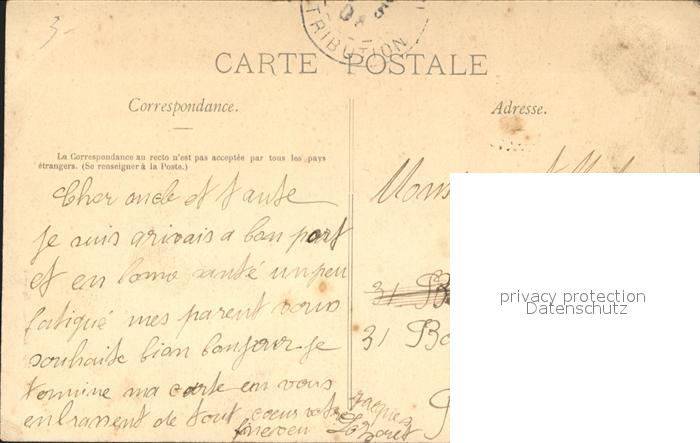 3-
TRIBUTION
CARTE POSTALE
Correspondance.
Adresse.
La Correspondance au recto n'est pas acceptée par tous les pays
étrangers. (Se renseigner à la Poste.)
Cher oncle et tante
je suis arivais a bon port
et en bonne santé un peu
fatiqué mes parent vous
souhaite bian bonjour je
termine ma carte en vous
enbrassent de tout coeur votre
neveu
Jacques
31
31 Bo
privacy protection
Datenschutz